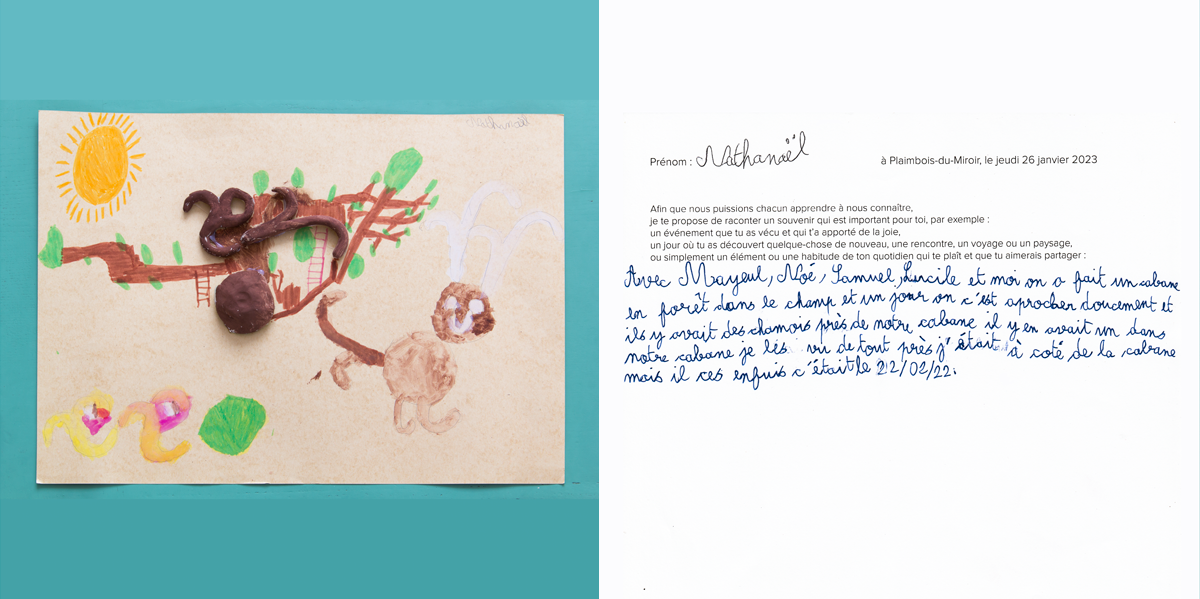 Nathanaël
Prénom : Nathanaël
à Plaimbois-du-Miroir, le jeudi 26 janvier 2023
Afin que nous puissions chacun apprendre à nous connaître,
je te propose de raconter un souvenir qui est important pour toi, par exemple :
un événement que tu as vécu et qui t'a apporté de la joie,
un jour où tu as découvert quelque-chose de nouveau, une rencontre, un voyage ou un paysage,
ou simplement un élément ou une habitude de ton quotidien qui te plaît et que tu aimerais partager :
Avec Mayeul, Noé, Samuel, Lucile et moi on a fait un cabane
en forêt dans le champ et un jour on c'est aprocher doucement et
ils y avait des chamois près de notre cabane il y en avait un dans
notre cabane je lès vu de tout près j'était à coté de la cabane
mais il ces enfuis c'était le 22/02/22.